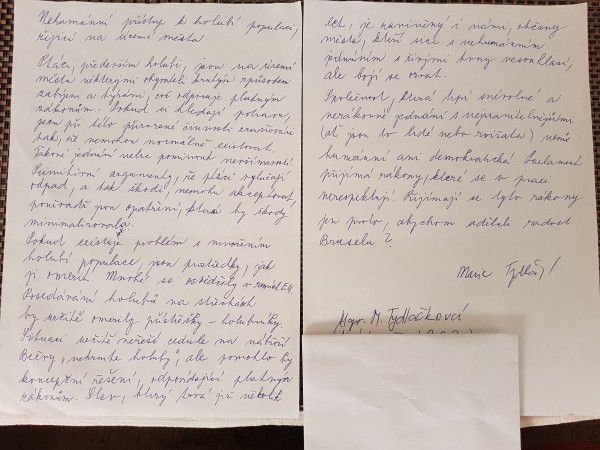 Nehumánní přístup k holubí populaci,
žijící na území města.
Ptáci, především holubi, jsou na území
města některými obyvateli krutým způsobem
zabíjeni a týráni, což odporuje platným
zákonům. Pokud si hledají potravu,
jsou při této přirozené činnosti zraňováni
tak, že nemohou normálně existovat.
Takové jednání nelze pominout nevšímavostí
Primitivní argumenty, že ptáci vylučují
odpad, a tak škodí, nemohu akceptovat,
poněvadž jsou opatření, která by škody
minimalizovala.
Pokud existuje problém s množením
holubí populace, jsou prostředky, jak
ji omezit. Mnohé se osvědčily v zemích EU.
Posedávání holubů na střechách
by určitě omezily přístřešky - holubníky.
Situaci určitě neřeší cedule na nábřeží
Bečvy "nekrmte holuby", ale pomohlo by
koncepční řešení, odpovídající platným
zákonům. Stav, který trvá již několik
let, je zaviněný i námi, občany
města, kteří sice s nehumánním
jednáním s živými tvory nesouhlasí,
ale bojí se ozvat.
Společnost, která trpí svévolné a
nezákonné jednání s nejzranitelnějšími
(ať jsou to lidé nebo zvířata) není
humánní ani demokratická. Parlament
přijímá zákony, které se v praxi
nerespektují. Přijímají se tyto zákony
jen proto, abychom udělali radost
Bruselu?
Marie
Mgr. M. Tydlačková